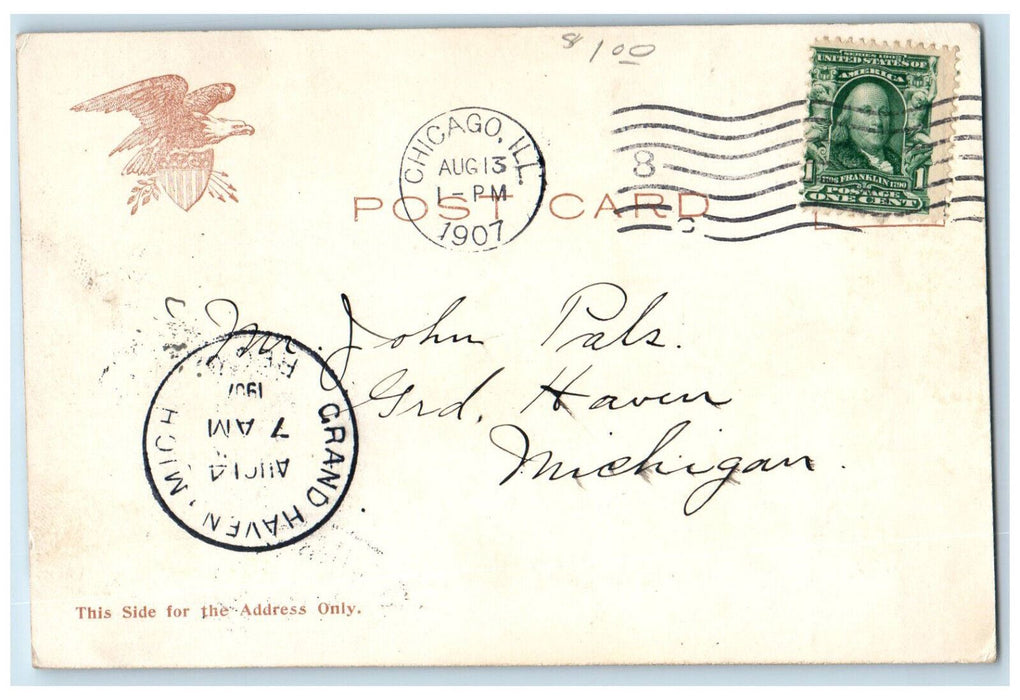 $1.00
SERIES 1902
UNITED STATES OF
AMERICA
1 FRANKLIN 1790 1
POSTAGE
ONE CENT
CHICAGO, ILL.
AUG 13
1- PM
1907
8
C
POST CARD
Mr. John Pals.
Grd. Haven
Michigan.
GRAND HAVEN, MICH
AUG 14
7 AM
1907
REC'D.
This Side for the Address Only.